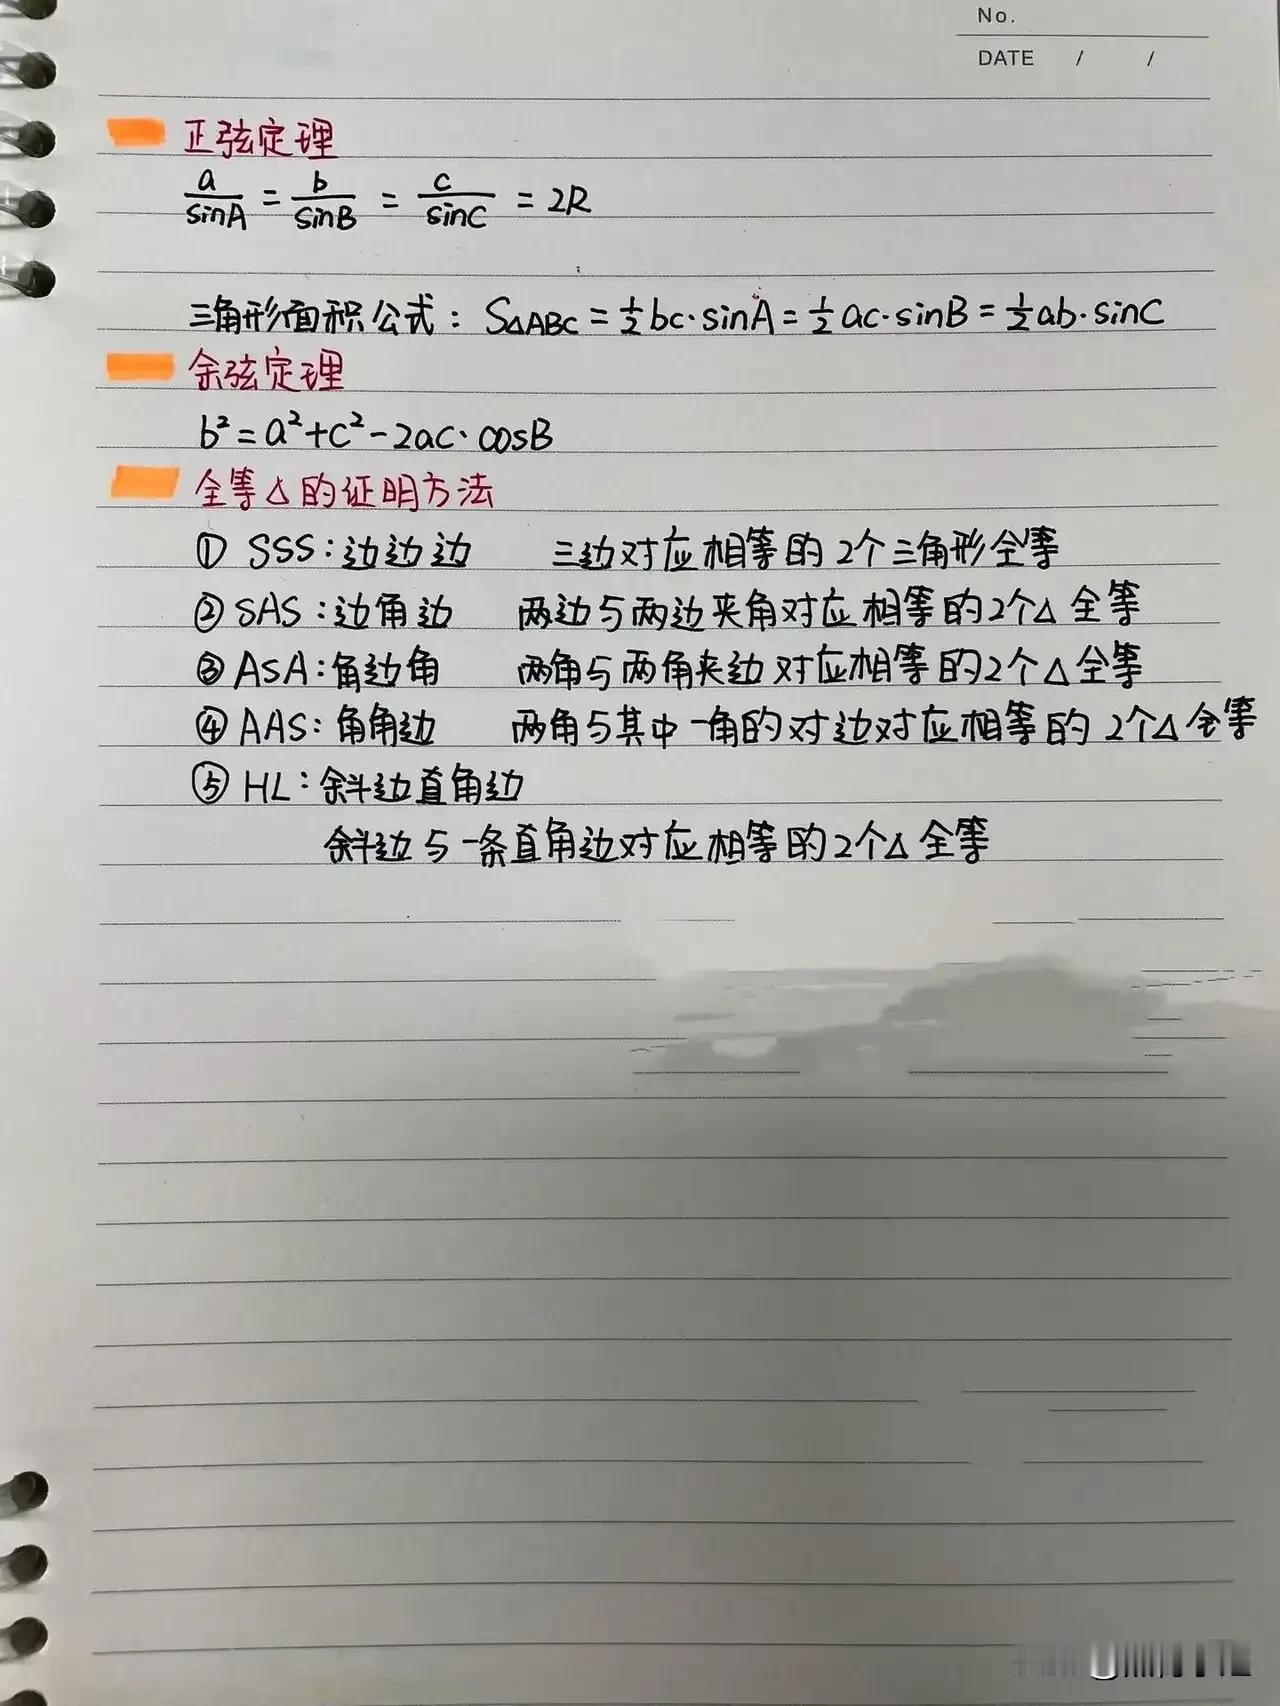 No.
DATE / /
正弦定理
a/sinA = b/sinB = c/sinC = 2R
三角形面积公式: S△ABC = ½bc·sinA = ½ac·sinB = ½ab·sinC
余弦定理
b²=a²+c²-2ac·cosB
全等△的证明方法
① SSS:边边边 三边对应相等的2个三角形全等
② SAS:边角边 两边与两边夹角对应相等的2个△全等
③ ASA:角边角 两角与两角夹边对应相等的2个△全等
④ AAS:角角边 两角与其中一角的对边对应相等的2个△全等
⑤ HL:斜边直角边
斜边与一条直角边对应相等的2个△全等